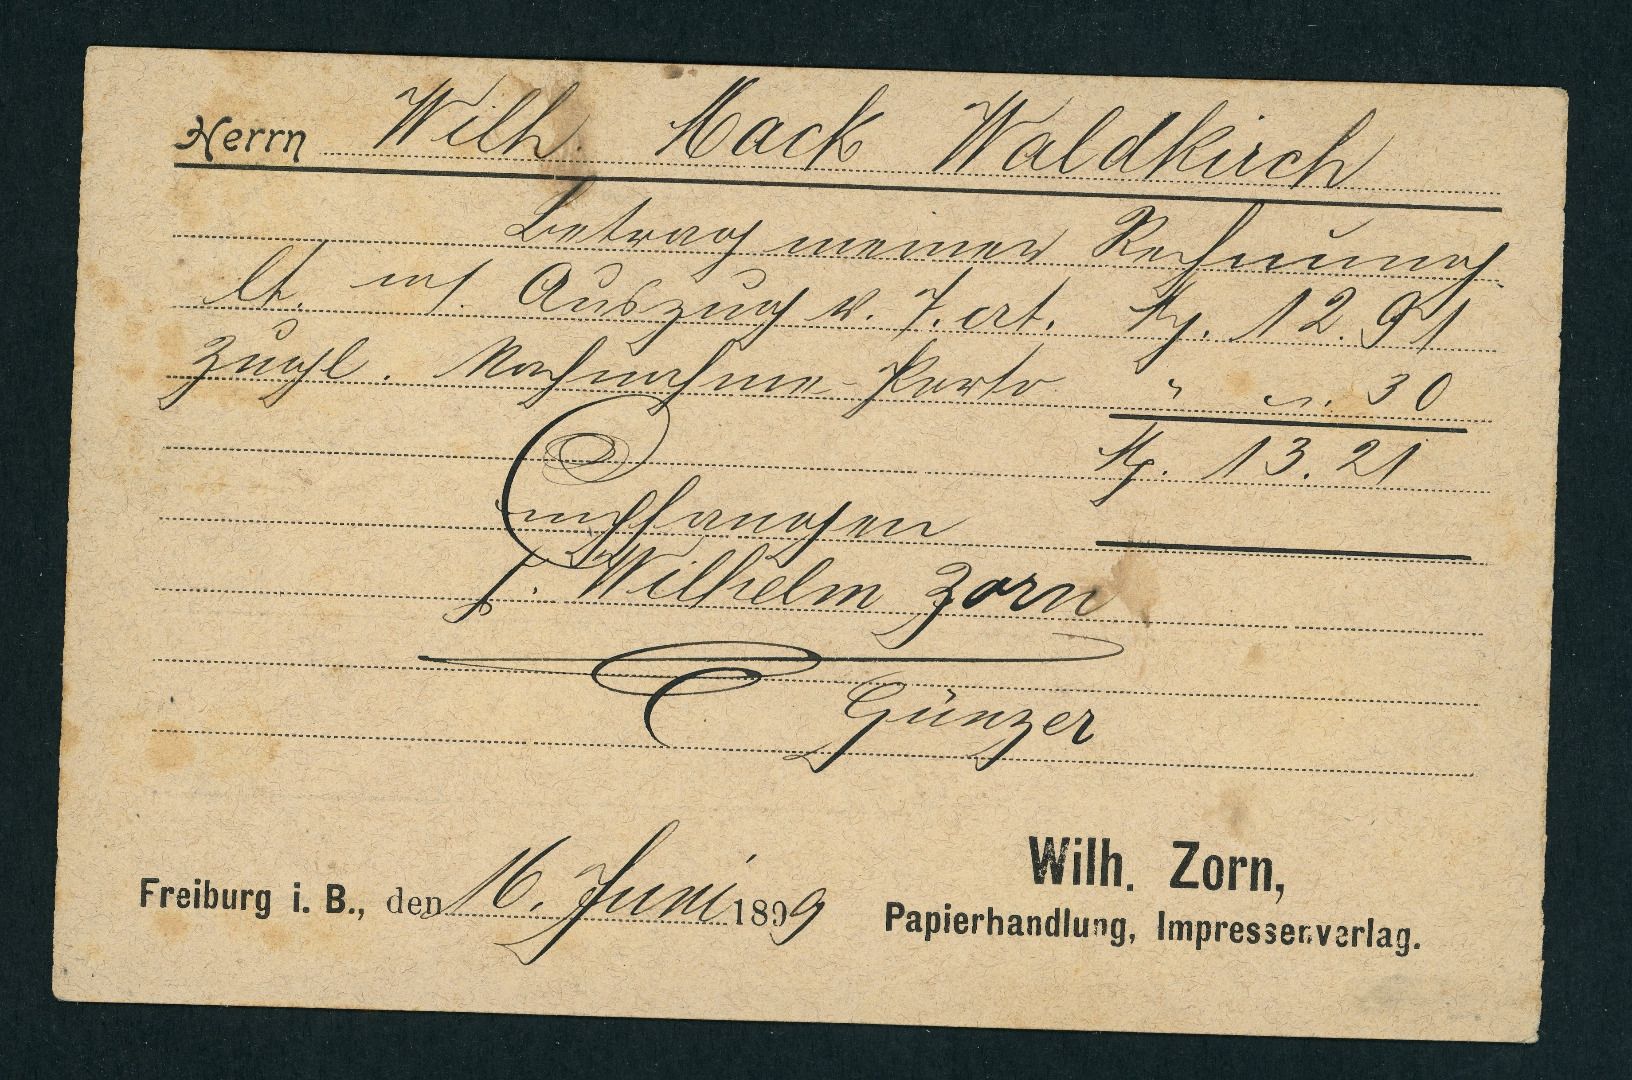 Herrn Wilh. Mack Waldkirch
Betrag meiner Rechnung
lt. Auszug v. 7. crt. M. 12.91
zuzgl. Nachnahme-Porto " -. 30
M. 13.21
Empfangen
f. Wilhelm Zorn
Günzer
Freiburg i. B., den 16. Juni 1899
Wilh. Zorn,
Papierhandlung, Impressenverlag.